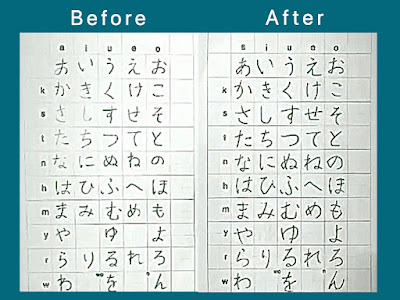 Before
a i u e o
あ い う え お
k か き く け こ
s さ し す せ そ
t た ち つ て と
n な に ぬ ね の
h は ひ ふ へ ほ
m ま み む め も
y や ゆ よ
r ら り る れ ろ
w わ wo を n ん
After
i u e o
あ い う え お
k か き く け こ
s さ し す せ そ
t た ち つ て と
n な に ぬ ね の
h は ひ ふ へ ほ
m ま み む め も
y や ゆ よ
r ら り る れ ろ
w わ wo を n ん